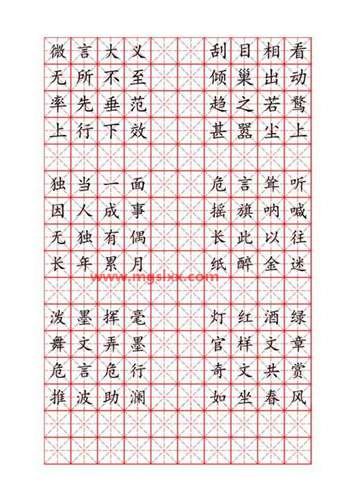 微言大义 刮目相看
无所不至 倾巢出动
率先垂范 趋之若鹜
上行下效 甚嚣尘上
独当一面 危言耸听
因人成事 摇旗呐喊
无独有偶 长此以往
长年累月 纸醉金迷
www.mgslxx.com
泼墨挥毫 灯红酒绿
舞文弄墨 官样文章
危言危行 奇文共赏
推波助澜 如坐春风